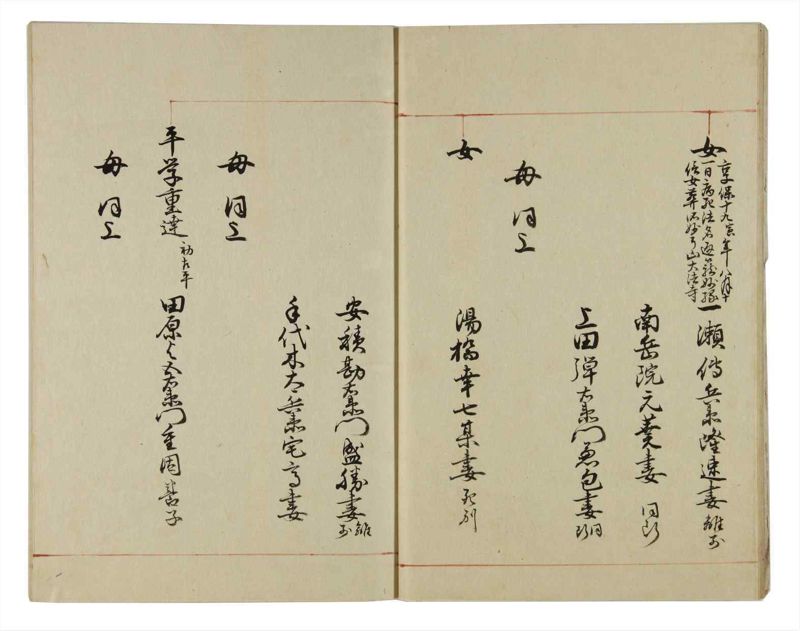 女
享保十九寅年八月十
一日病死法名
信女葬
山大法寺
一瀬傳兵衛隆速妻 離別
南岳院元
妻 同断
上田弾右衛門
包妻 同断
母同上
女
湯橋幸七某妻 死別
安積勘右衛門盛勝妻 離別
手代木太兵衛宅
妻
母同上
平学重達
初右平
田原与五右衛門重固
子
母同上